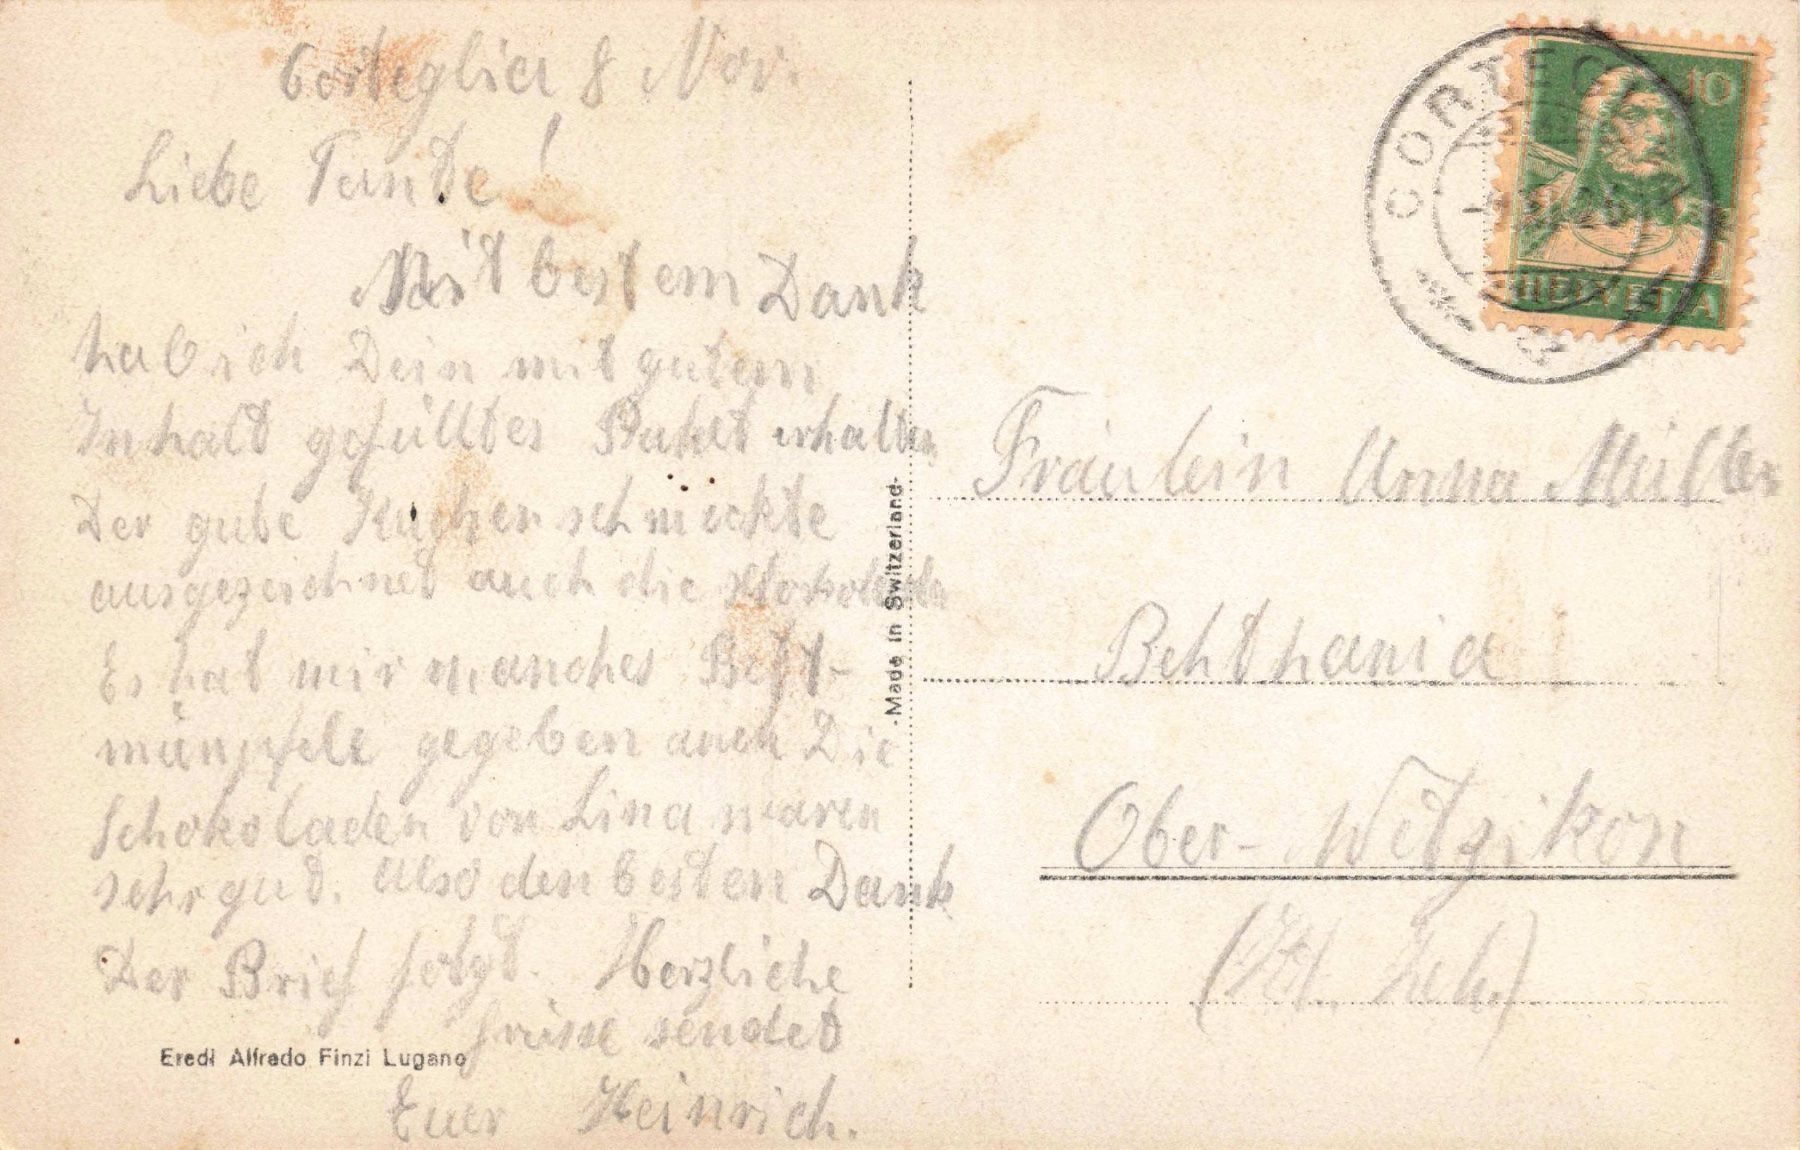 Corteglia 8 Nov.
Liebe Tante!
Mit bestem Dank
hab ich Dein mit gutem
Inhalt gefülltes Paket erhalten
Der gute Kuchen schmeckte
ausgezeichnet auch die
Es hat mir manches Bett-
mümpfele gegeben auch Die
Schokoladen von Lina waren
sehr gut. Also den besten Dank
Der Brief folgt. Herzliche
Grüsse sendet
Euer Heinrich.
Eredi Alfredo Finzi Lugano
-Made in Switzerland-
CORTEGLIA
10
HELVETIA
Fräulein Anna Müller
Behthania
Ober-Wetzikon
(Kt. Zch.)